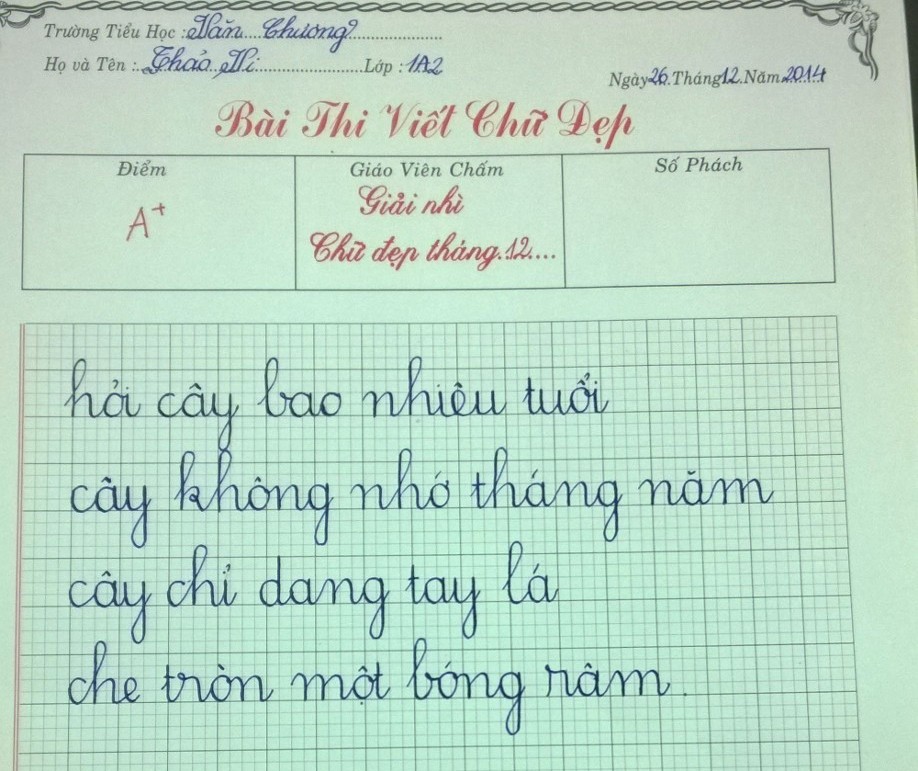 Trường Tiểu Học : Văn Chương
Họ và Tên : Thảo Nhi Lớp : 1A2
Ngày 26 Tháng 12 Năm 2014
Bài Thi Viết Chữ Đẹp
Điểm Giáo Viên Chấm Số Phách
A+ Giải nhì
Chữ đẹp tháng 12....
hỏi cây bao nhiêu tuổi
cây không nhớ tháng năm
cây chỉ dang tay lá
che tròn một bóng râm.